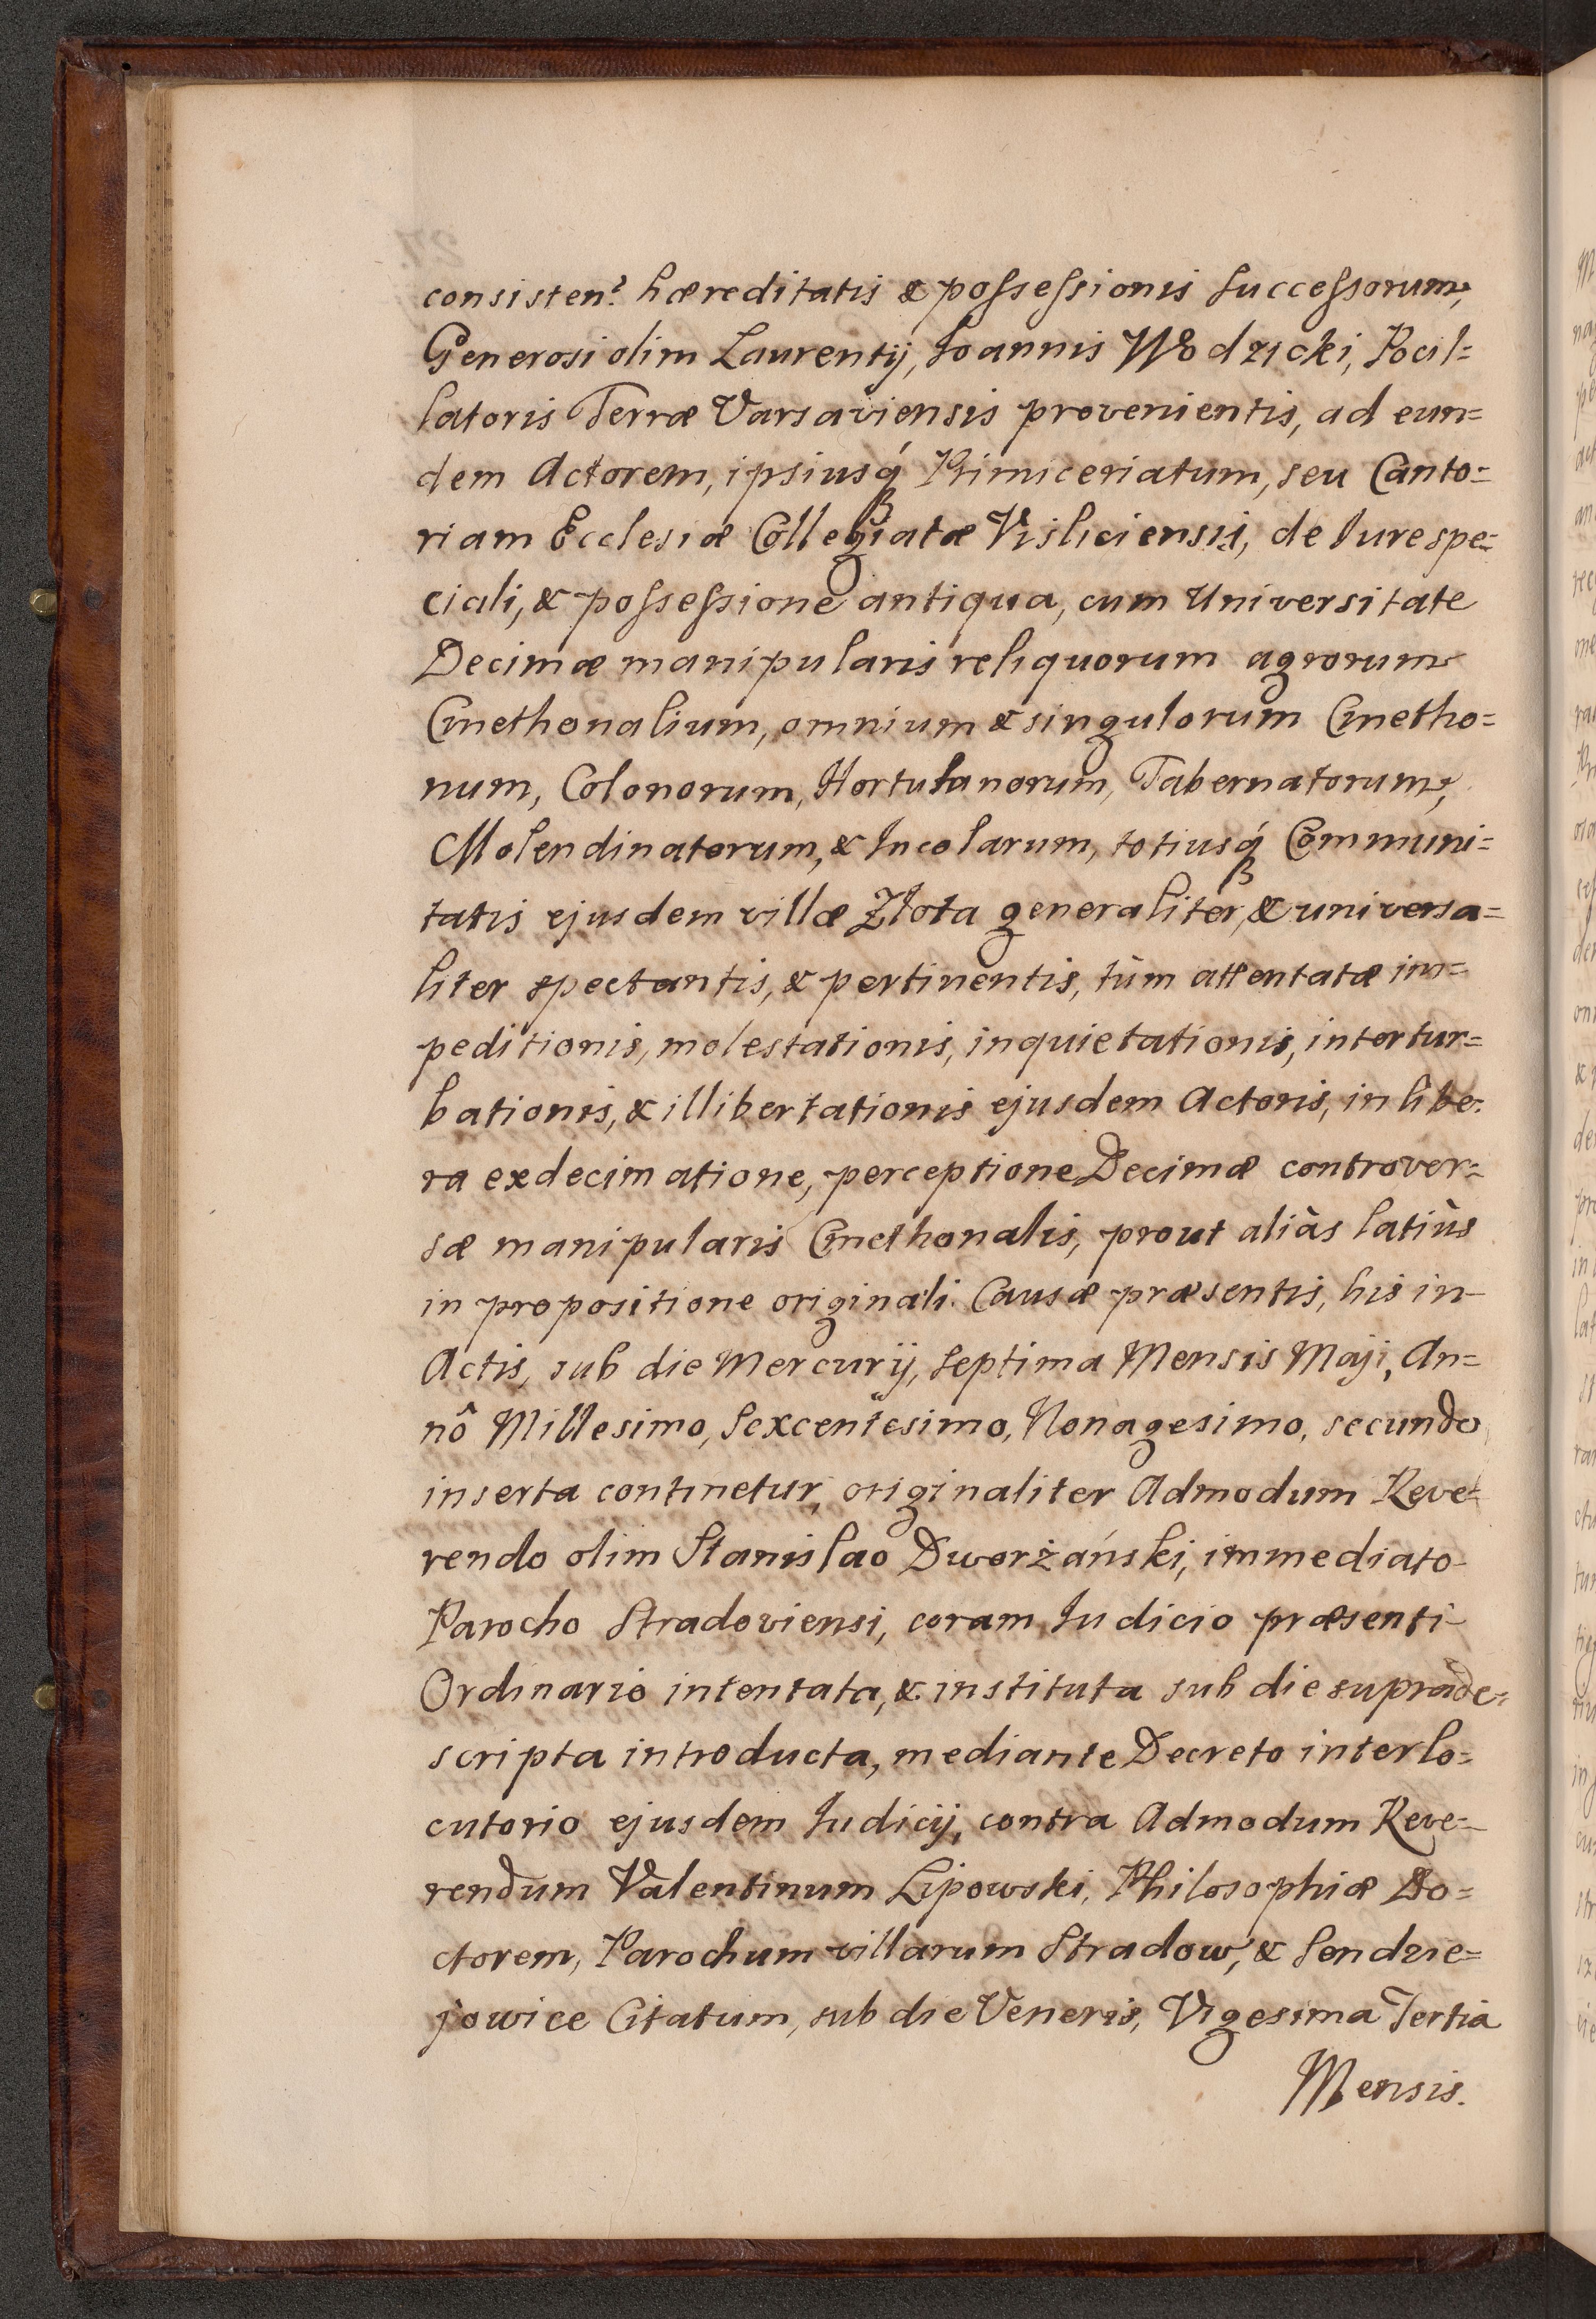 consisten? hæreditatis & possessionis Successorum,
Generosi olim Laurentij, Ioannis Wodzicki, Pocil=
latoris Terræ Varsaviensis provenientis, ad eun=
dem Actorem, ipsiusq́ Primiceriatum, seu Canto=
riam Ecclesiæ Collegiatæ Visliciensis, de Iure spe=
ciali, & possessione antiqua, cum Universitate
Decimæ manipularis reliquorum agrorum
Cmethonalium, omnium & singulorum Cmetho=
num, Colonorum, Hortulanorum, Tabernatorum,
Molendinatorum, & Incolarum, totiusq́ Communi=
tatis ejusdem villæ Złota generaliter, & universa=
liter spectantis, & pertinentis, tùm attentatæ im=
peditionis, molestationis, inquietationis, intertur=
bationis, & illibertationis ejusdem Actoris, in libe=
ra exdecimatione, perceptione Decimæ controver=
sæ manipularis Cmethonalis, prout aliàs latiùs
in propositione originali Causæ præsentis, his in
Actis, sub die Mercurij, Septima Mensis Maji, An=
nô Millesimo, Sexcentesimo, Nonagesimo, secundo
inserta continetur, originaliter Admodum Reve=
rendo olim Stanislao Dworżański, immediato
Parocho Stradoviensi, coram Iudicio præsenti
Ordinario intentata, & instituta sub die suprade=
scripta introducta, mediante Decreto interlo=
cutorio ejusdem Iudicij, contra Admodum Reve=
rendum Valentinum Lipowski, Philosophiæ Do=
ctorem, Parochum villarum Stradow, & Sendzie=
jowice Citatum, sub die Veneris, Vigesima Tertia
Mensis.